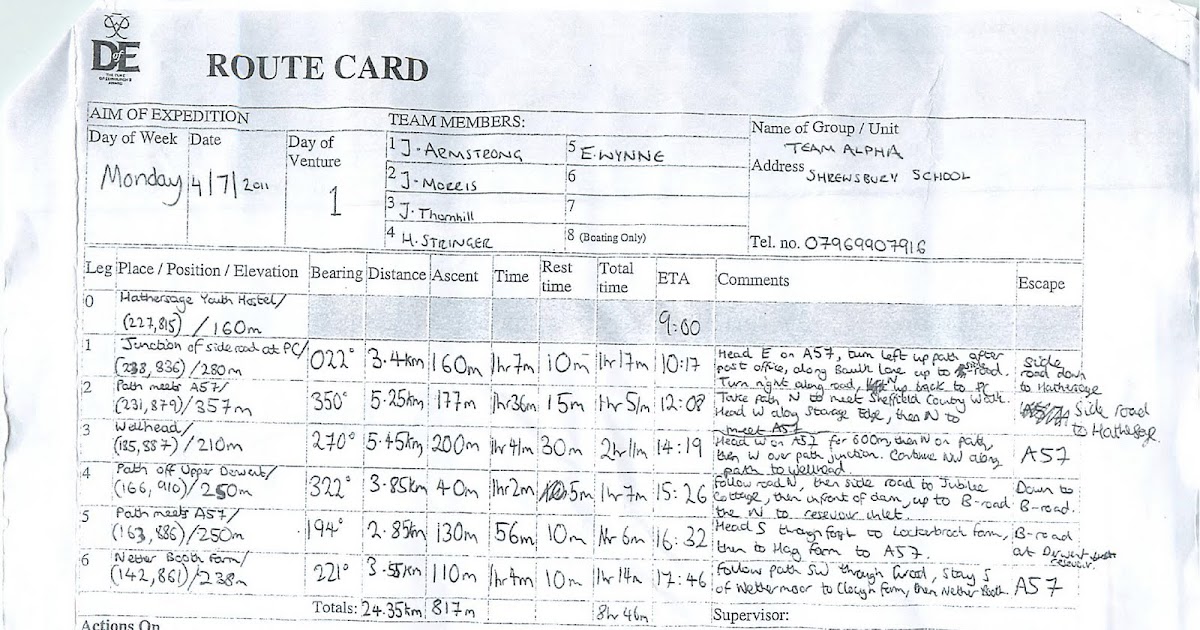 DofE
THE DUKE
OF EDINBURGH'S
AWARD
ROUTE CARD
AIM OF EXPEDITION
TEAM MEMBERS:
Name of Group / Unit
TEAM ALPHA
Day of Week Date Day of Venture
Monday 4/7/2011 1
1 J. ARMSTRONG 5 E. WYNNE
2 J. MORRIS 6
3 J. Thornhill 7
4 H. STRINGER 8 (Boating Only)
Address SHREWSBURY SCHOOL
Tel. no. 07969907916
Leg Place / Position / Elevation Bearing Distance Ascent Time Rest time Total time ETA Comments Escape
0 Hathersage Youth Hostel/
(227,815) / 160m 9:00
1 Junction of side road at PC/
(238, 836) / 280m 022° 3.4km 160m 1hr7m 10m 1hr17m 10:17
Head E on A57, turn left up path after
post office, along Baulk Lane up to side road.
Turn right along road, up back to PC
Side
road down
to Hathersage
2 Path meets A57/
(231,879)/357m 350° 5.25km 177m 1hr36m 15m 1hr51m 12:08
Take path N to meet Sheffield County Walk.
Head W along Stanage Edge, then N to
meet A57
Side road
to Hathersage
3 Wellhead/
(185,887)/210m 270° 5.45km 200m 1hr41m 30m 2hr11m 14:19
Head W on A57 for 600m, then N on path,
then W over path junction. Continue NW along
path to wellhead
A57
4 Path off Upper Derwent/
(166,910)/250m 322° 3.85km 40m 1hr2m 5m 1hr7m 15:26
Follow road N, then side road to Jubilee
Cottage, then infront of dam, up to B-road
the N to resevoir inlet.
Down to
B-road.
5 Path meets A57/
(163,886)/250m 194° 2.85km 130m 56m 10m 1hr 6m 16:32
Head S through to Lockerbrook farm,
then to Hag Farm to A57.
B-road
at Derwent
resevoir
6 Nether Booth Farm/
(142,861)/238m 221° 3.55km 110m 1hr4m 10m 1hr 14m 17:46
Follow path SW through Wood, stay S
of Wethermoor to farm, then Nether Booth.
A57
Totals: 24.35km 817m 8hr 46m Supervisor:
Actions On